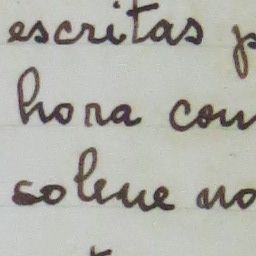 escritas p
hora com
solene no